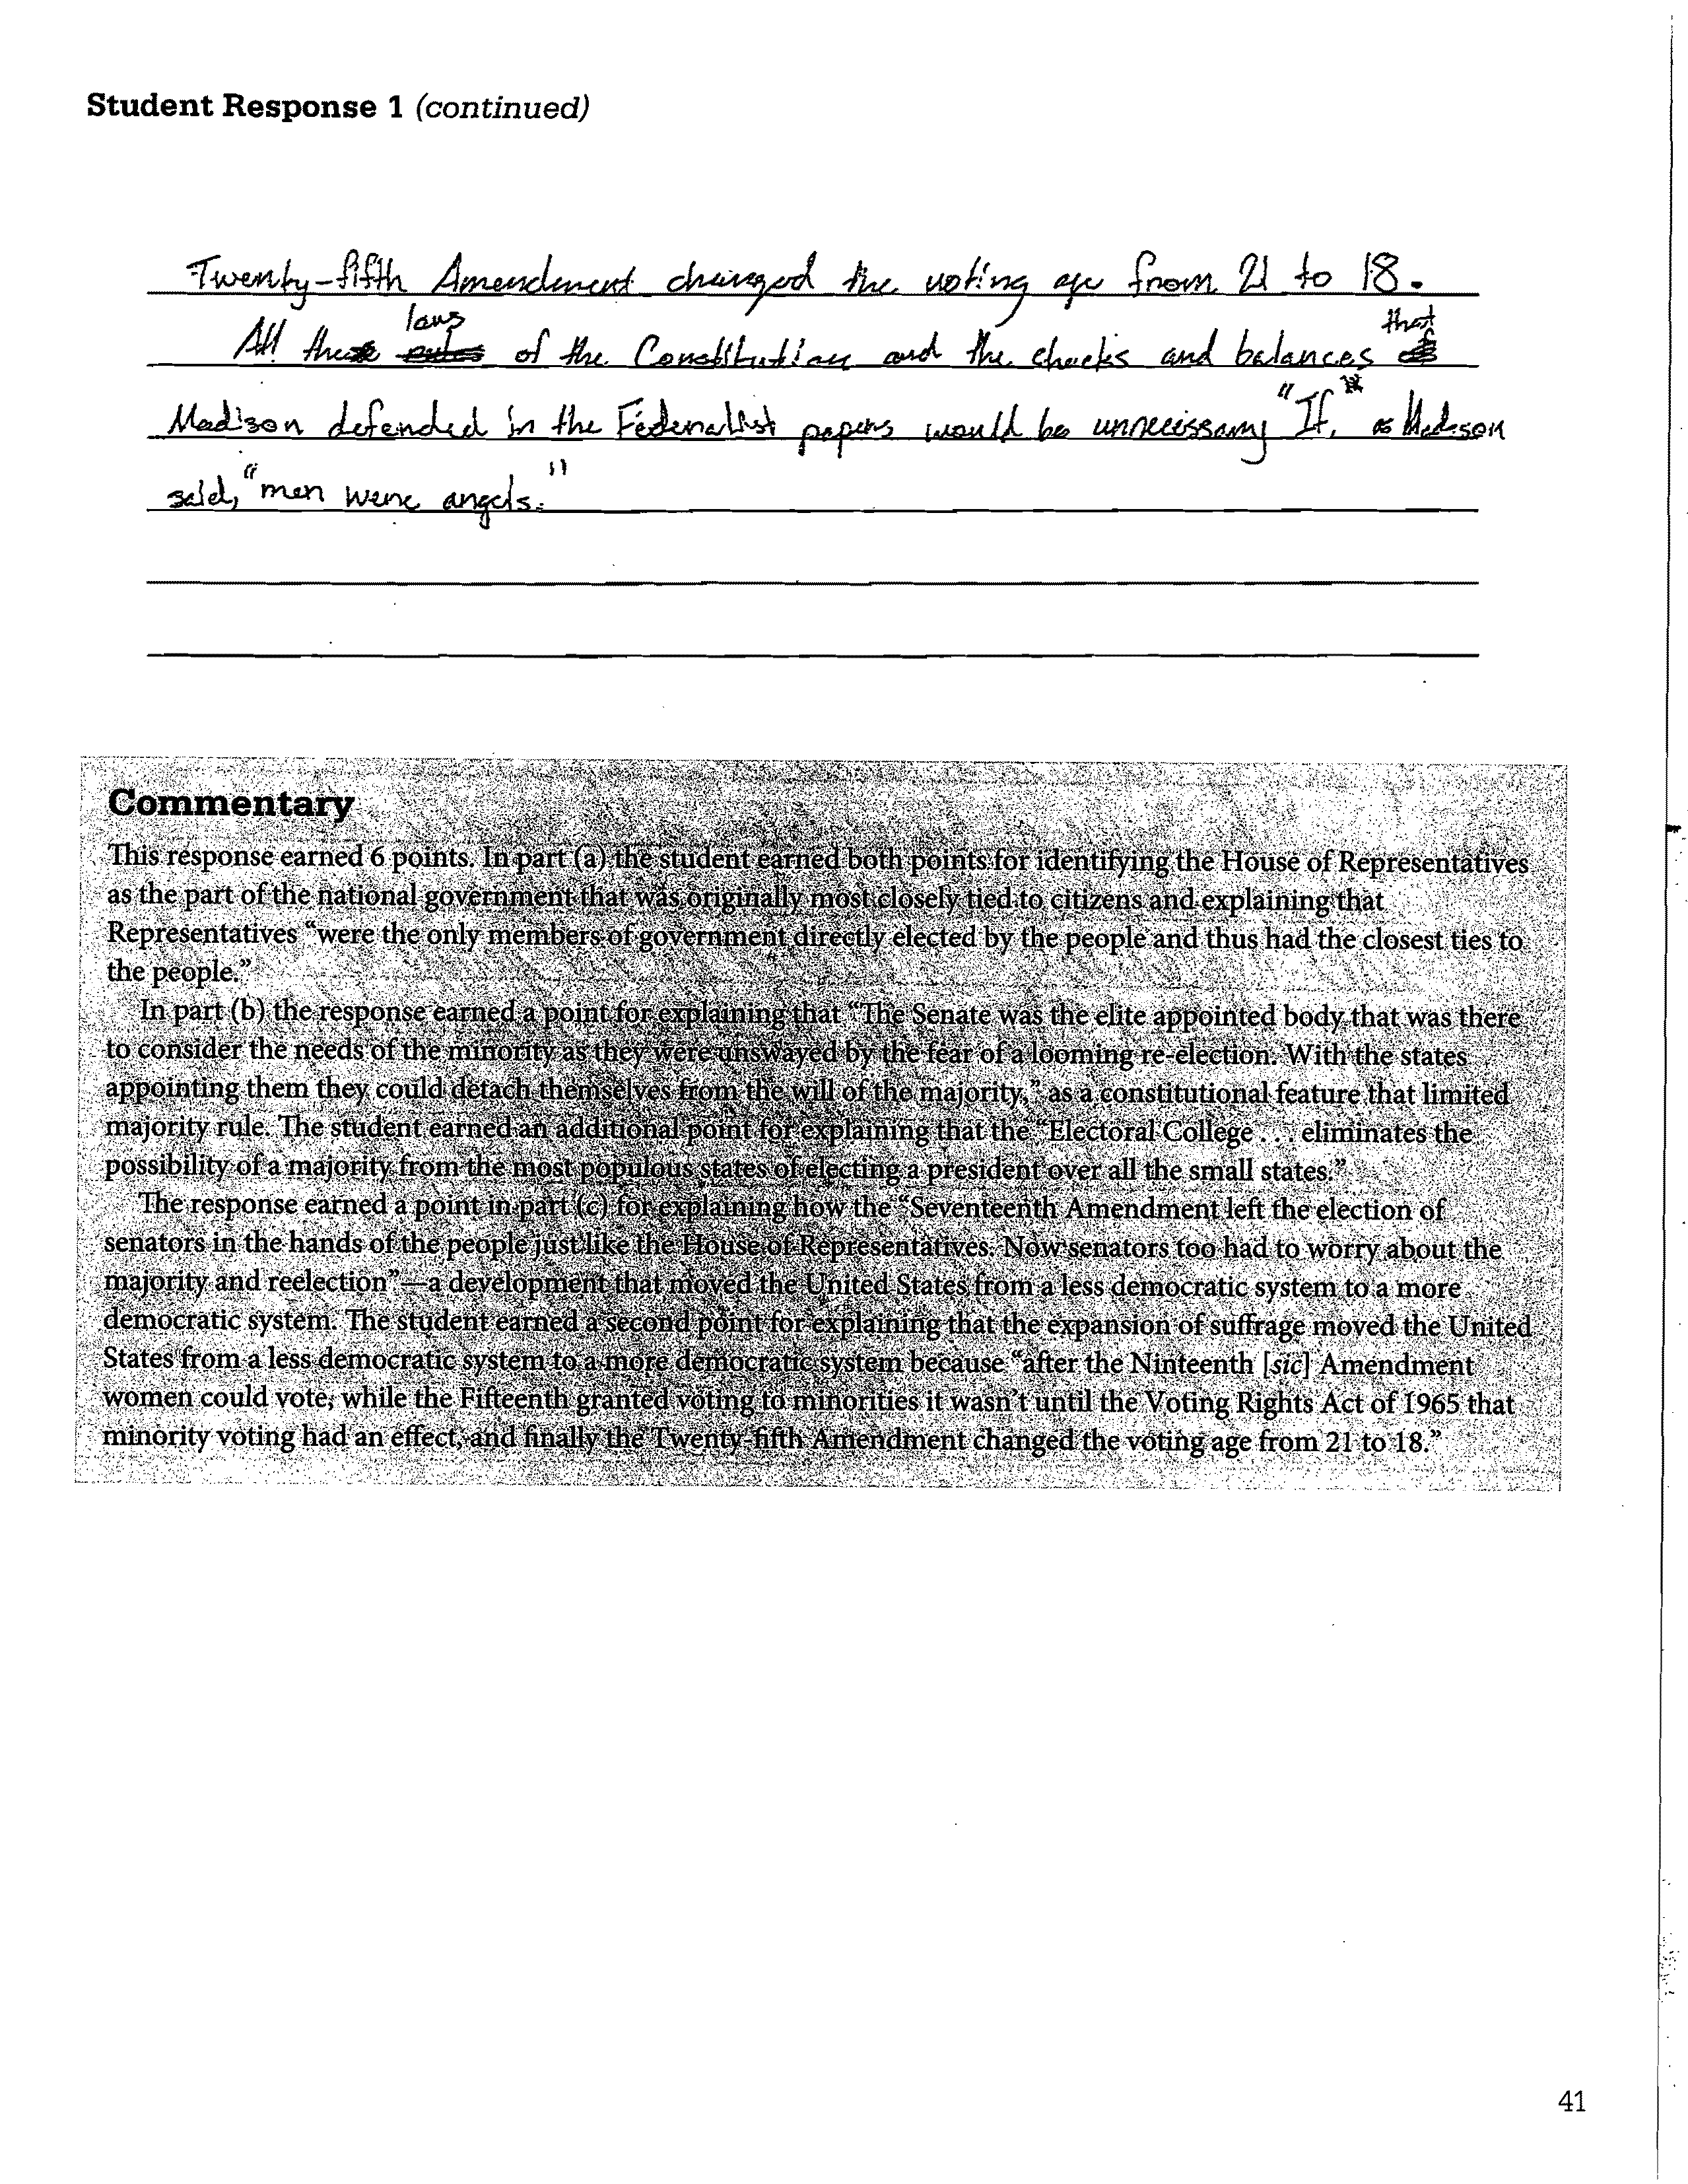 Student Response 1 (continued)
Twenty-fifth Amendment changed the voting age from 21 to 18.
laws that
All these rules of the Constitution and the checks and balances
Madison defended in the Federalist papers would be unnecessary "If," as Madison
said, "men were angels."
Commentary
This response earned 6 points. In part (a) the student earned both points for identifying the House of Representatives
as the part of the national government that was originally most closely tied to citizens and explaining that
Representatives “were the only members of government directly elected by the people and thus had the closest ties to
the people.”
In part (b) the response earned a point for explaining that “The Senate was the elite appointed body that was there
to consider the needs of the minority as they were unswayed by the fear of a looming re-election. With the states
appointing them they could detach themselves from the will of the majority,” as a constitutional feature that limited
majority rule. The student earned an additional point for explaining that the “Electoral College . . . eliminates the
possibility of a majority from the most populous states of electing a president over all the small states.”
The response earned a point in part (c) for explaining how the “Seventeenth Amendment left the election of
senators in the hands of the people just like the House of Representatives. Now senators too had to worry about the
majority and reelection”—a development that moved the United States from a less democratic system to a more
democratic system. The student earned a second point for explaining that the expansion of suffrage moved the United
States from a less democratic system to a more democratic system because “after the Ninteenth [sic] Amendment
women could vote, while the Fifteenth granted voting to minorities it wasn’t until the Voting Rights Act of 1965 that
minority voting had an effect, and finally the Twenty-fifth Amendment changed the voting age from 21 to 18.”
41